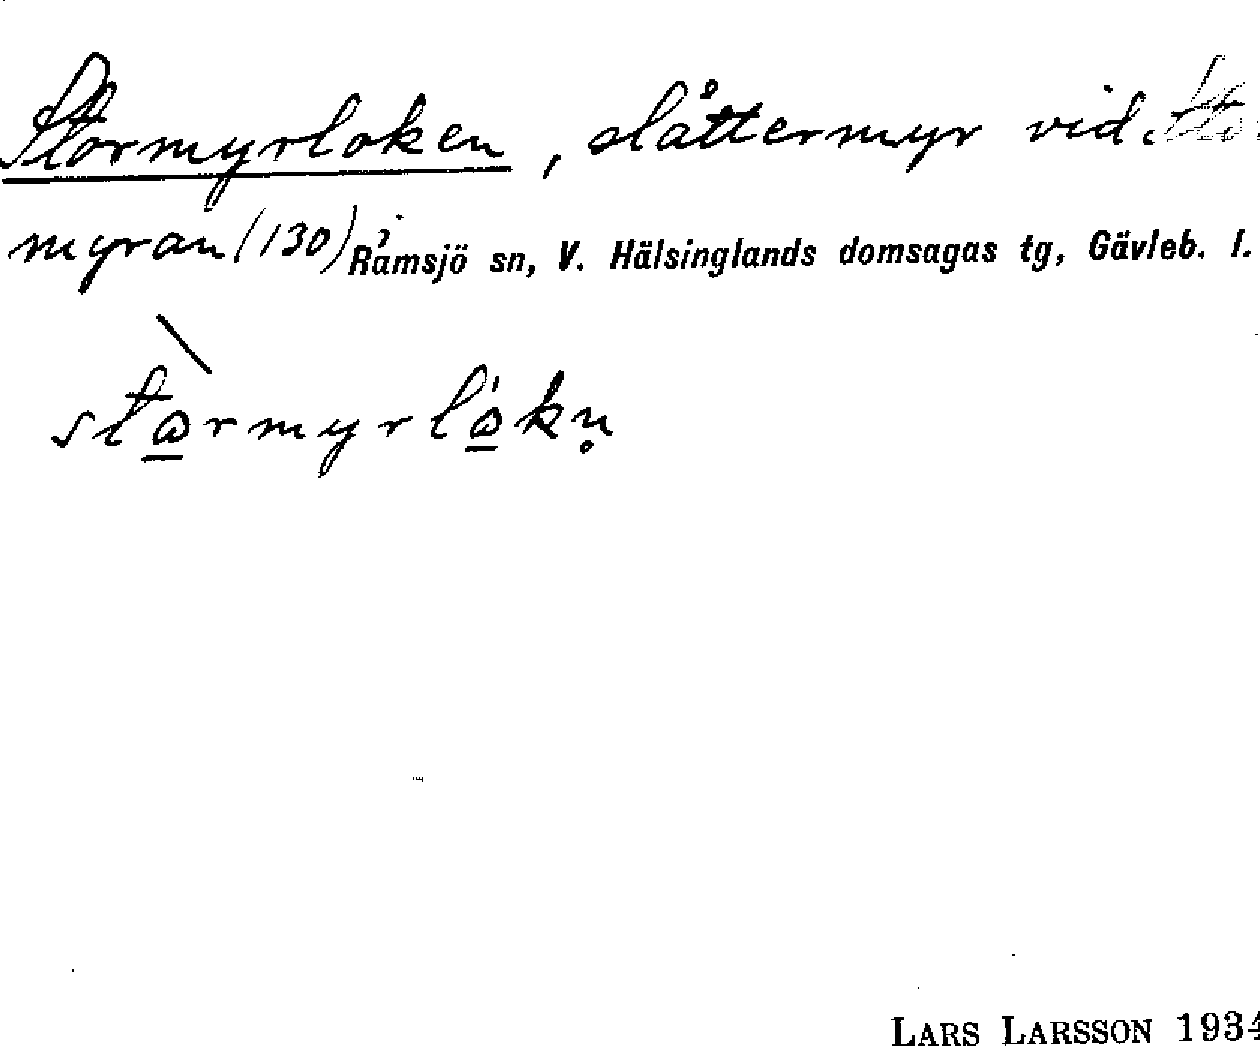 Stormyrloken, slåttermyr vid Sto
myran (130) i Ramsjö sn, V. Hälsinglands domsagas tg, Gävleb. l.
stormyrlokn̥
LARS LARSSON 1934